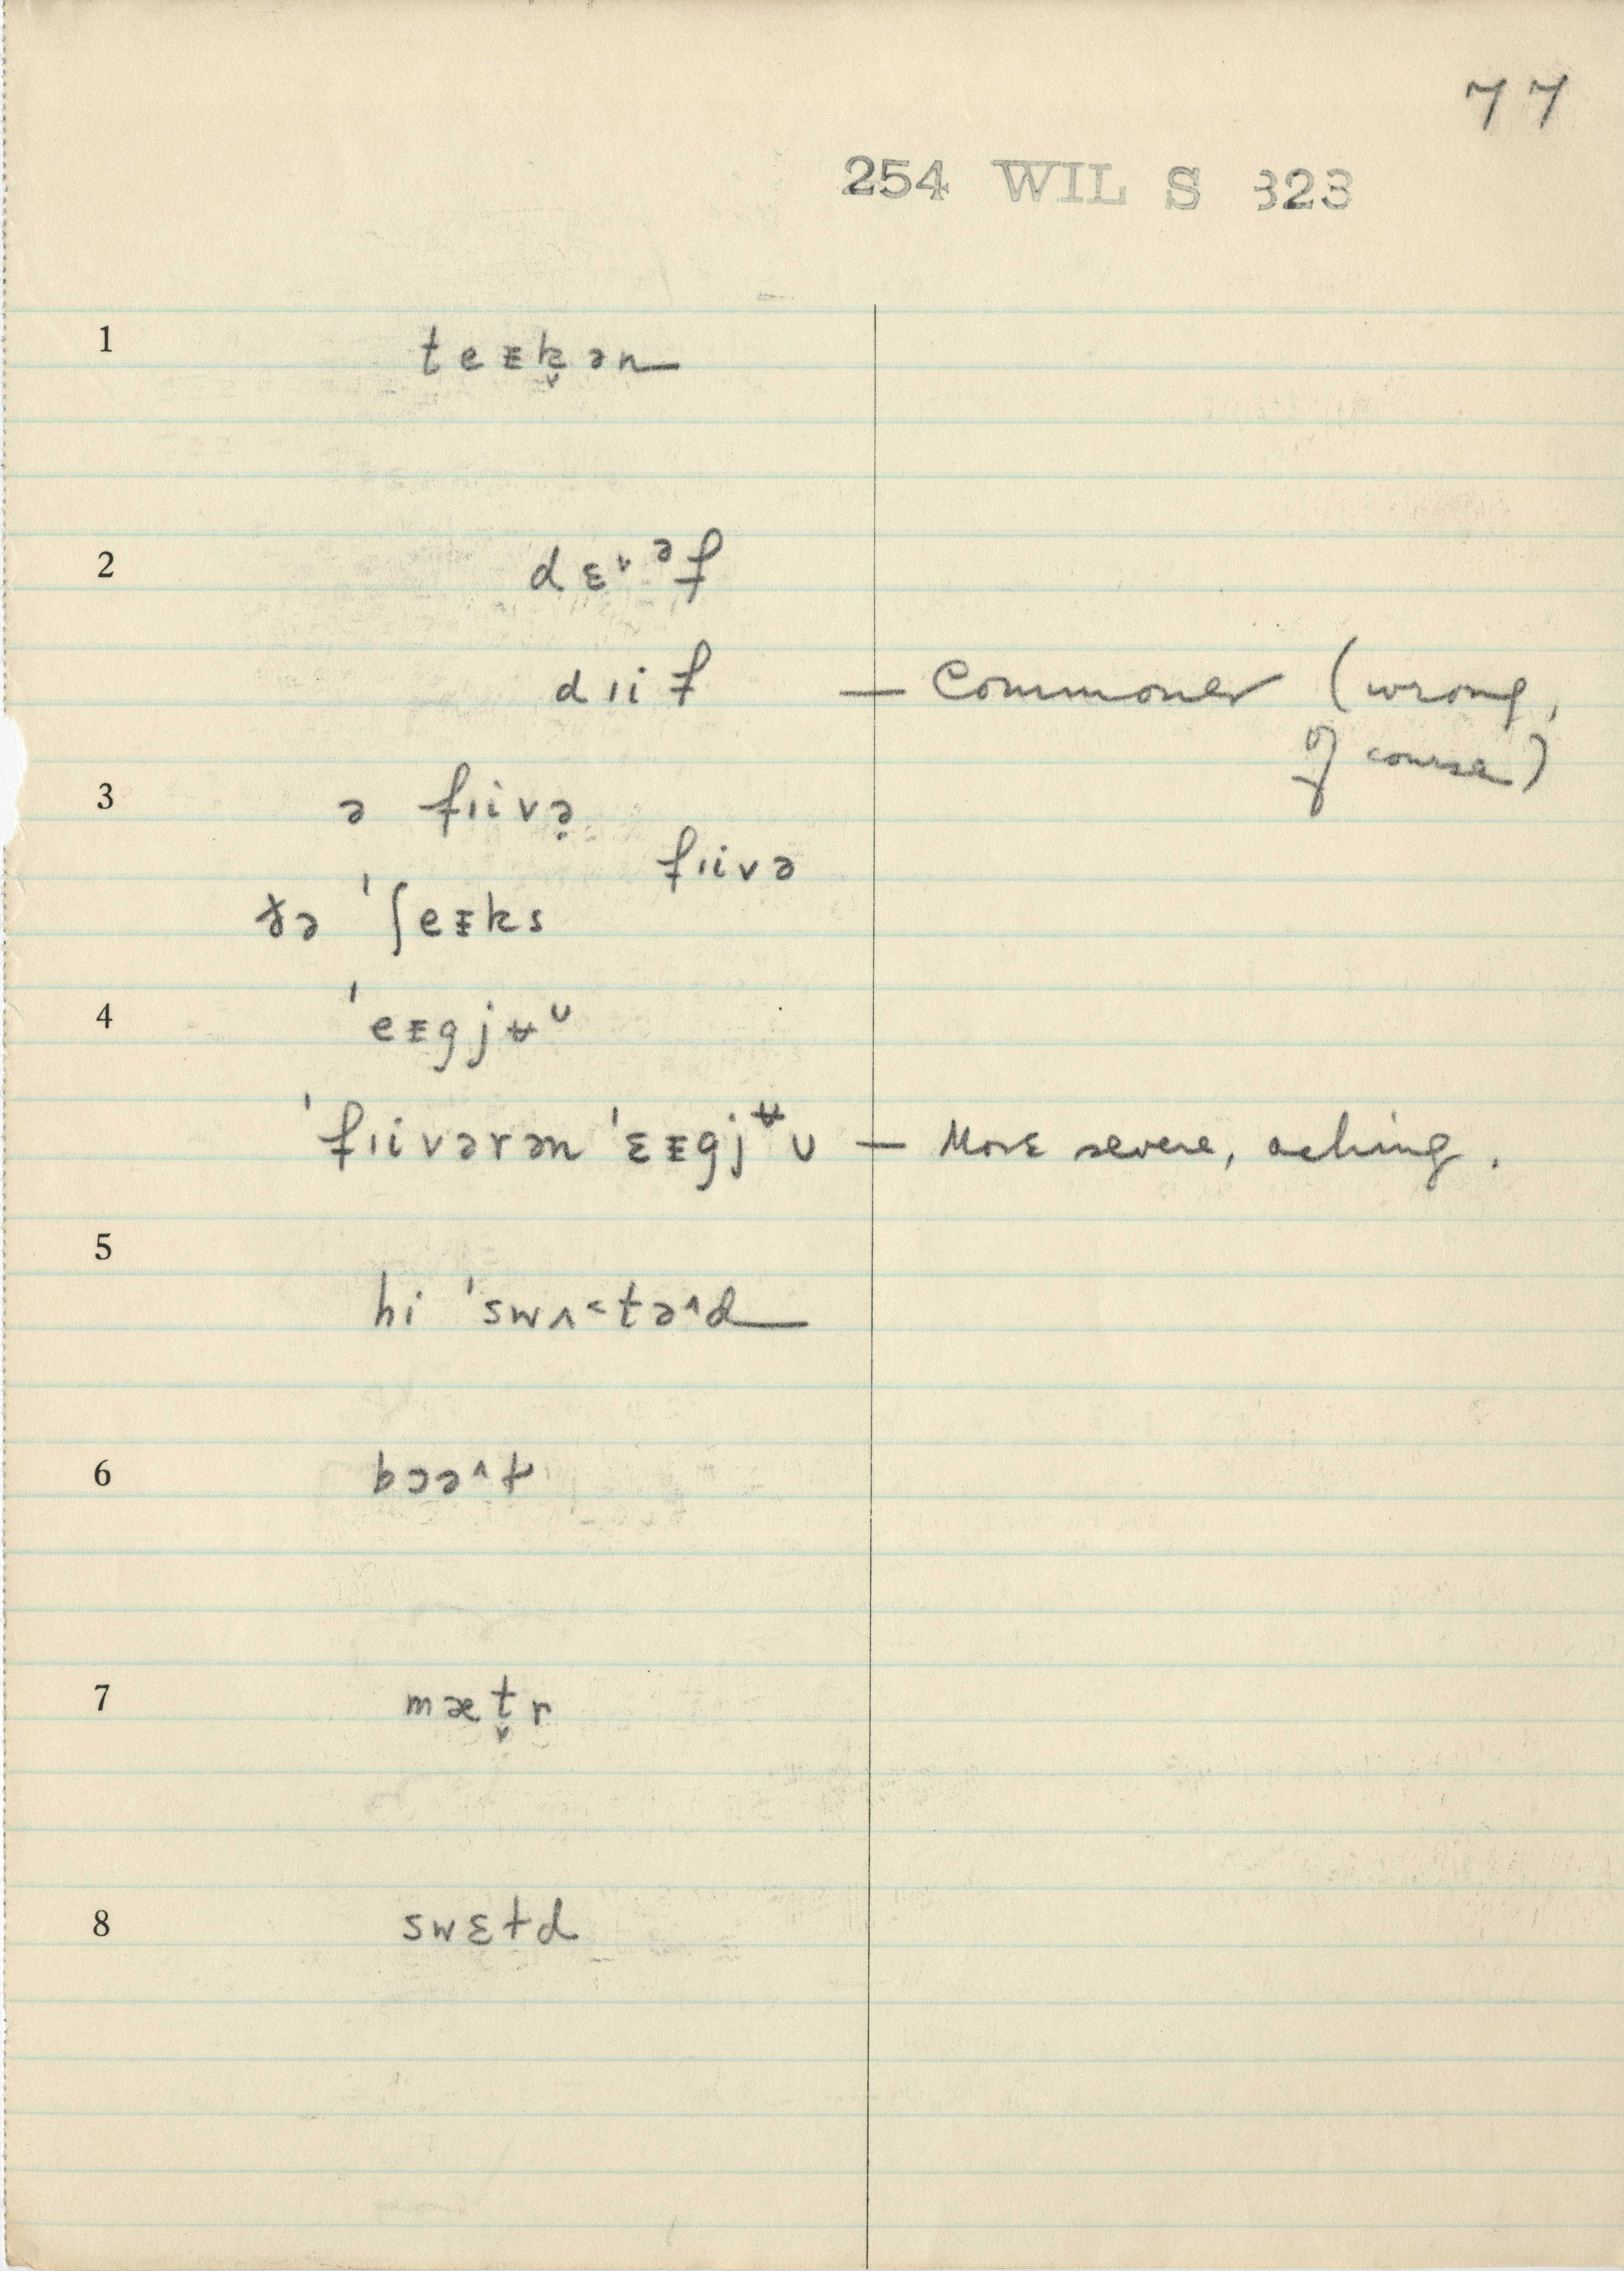 77
254 WIL S 323
1 teᵻk̬ən
2 dɛ˅ᵊf
dɪif — Commoner (wrong,
of course)
3 ə fɪivə̣
fɪivə
ðə ˈʃeᵻks
4 ˈeᵻgjʉᶸ
ˈfɪivərən ˈɛᵻgjᶶʊ — More severe, aching.
5 hi ˈswʌ˂tə˄d
6 bɔə˄ɫ
7 mæt̬r
8 swɛtd